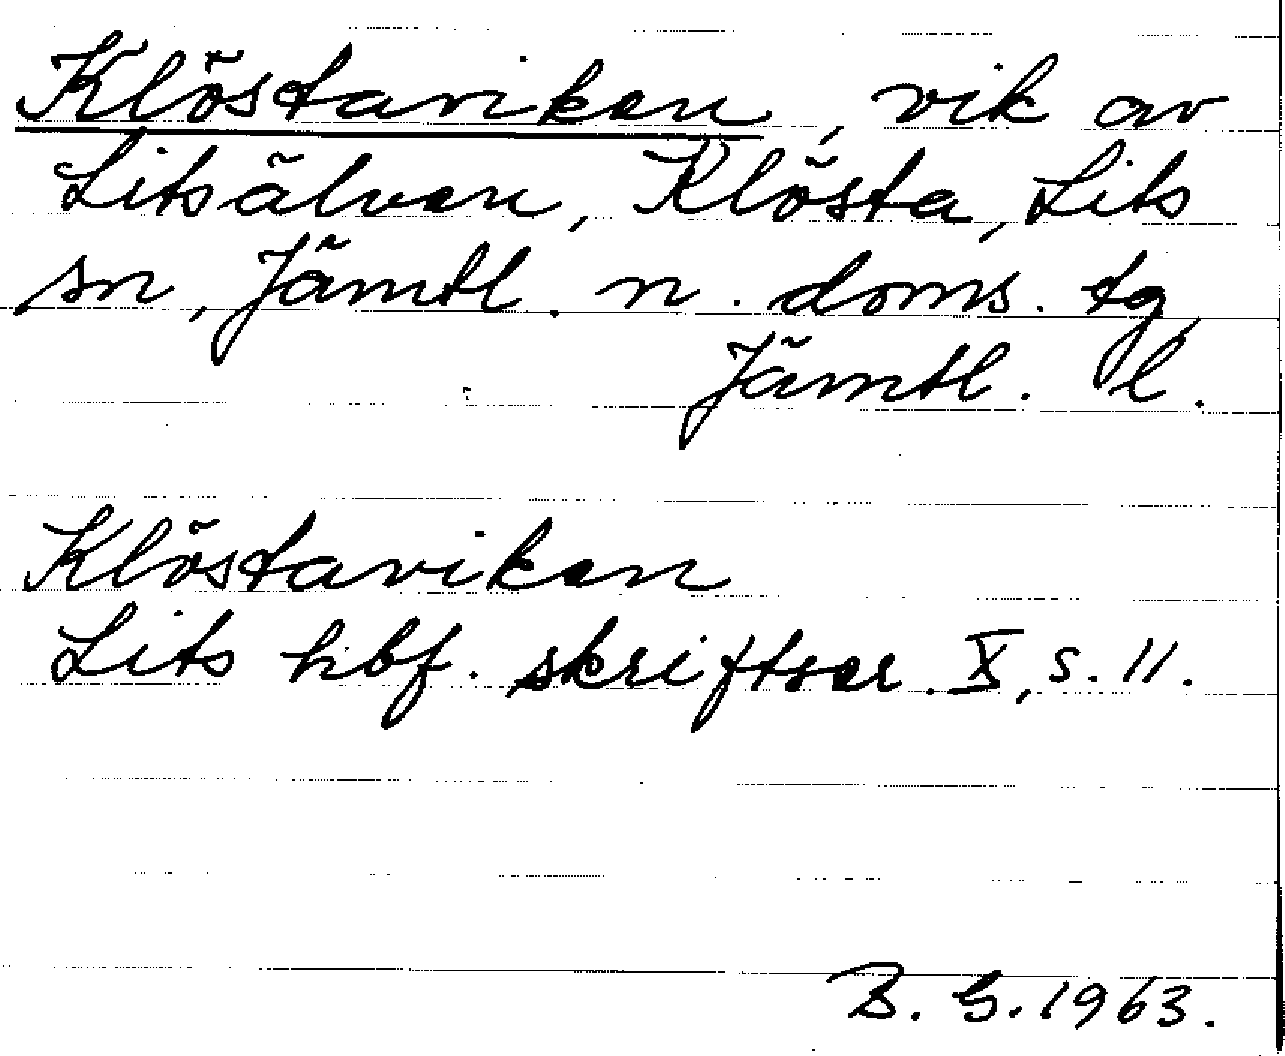 Klöstaviken, vik av
Litsälven, Klösta, Lits
sn, Jämtl. n. doms. tg,
Jämtl. l.
Klöstaviken
Lits hbf. skriftser. X, s. 11.
B. G. 1963.